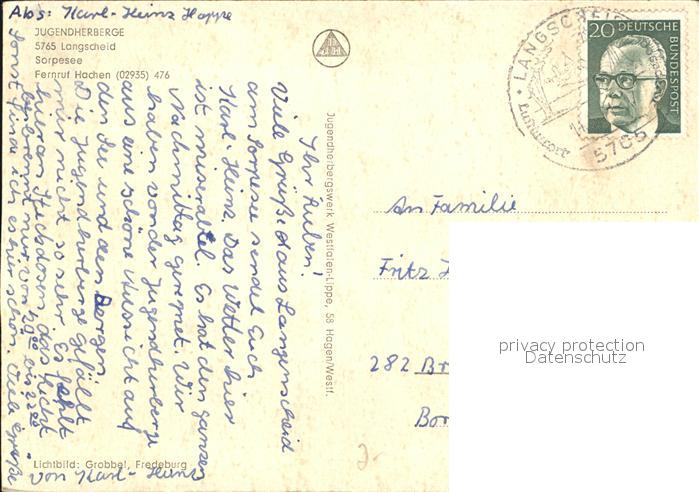 Abs: Karl-Heinz Hoppe
JUGENDHERBERGE
5765 Langscheid
Sorpesee
Fernruf Hachen (02935) 476
Ihr Lieben!
Viele Grüße aus Langenscheid
am Sorpesee sendet Euch
Karl-Heinz. Das Wetter hier
ist miserabel. Es hat den ganzen
Nachmittag geregnet. Wir
haben von der Jugendherberge
aus eine schöne Aussicht auf
den See und den Bergen.
Die Jugendherberge gefällt
mir nicht so sehr. Es fehlt
hier an Steckdosen, das Licht
brennt nur von 20⁰⁰ bis 22⁰⁰
sonst finde ich es hier schön. Viele Grüße
von Karl-Heinz
Lichtbild: Grobbel, Fredeburg
Jugendherbergswerk Westfalen-Lippe, 58 Hagen/Westf.
LANGSCHEID
Luftkurort
5765
20 DEUTSCHE
BUNDESPOST
An Familie
Fritz
282 Br
Bor
privacy protection
Datenschutz